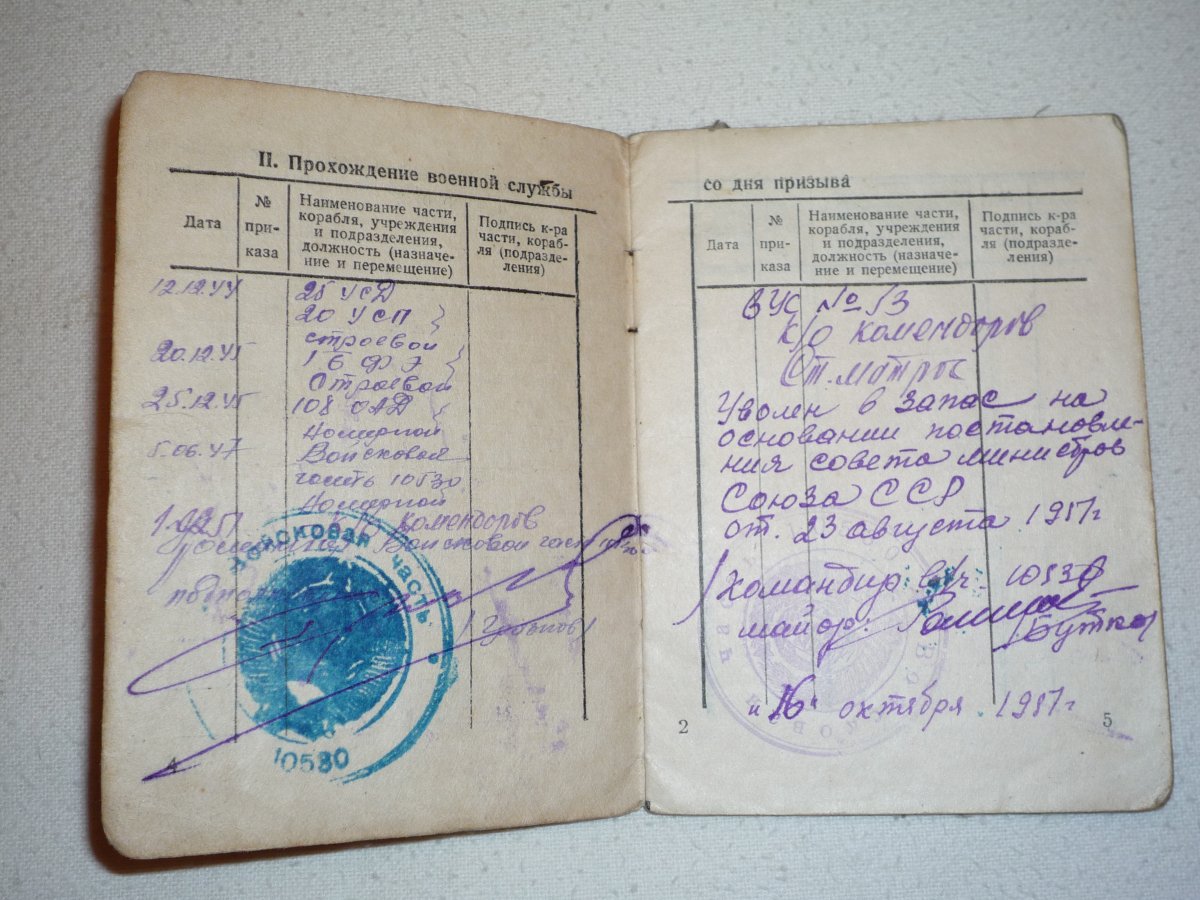 II. Прохождение военной службы
Дата
№ при-каза
Наименование части,
корабля, учреждения
и подразделения,
должность (назначе-
ние и перемещение)
Подпись к-ра
части, кораб-
ля (подразде-
ления)
12.12.44
25 УСД
20 УСП
строевой
20.12.45
1 б ФЭ
Строевой
25.12.45
108 ОАД
Номерной
5.06.47
Войсковая
часть 10530
Номерной
комендоров
Войсковой
войсковая часть
10530
4
со дня призыва
Дата
№
при-
каза
Наименование части,
корабля, учреждения
и подразделения,
должность (назначе-
ние и перемещение)
Подпись к-ра
части, кораб-
ля (подразде-
ления)
ВУС № 53
к/о комендоров
Ст. матрос
Уволен в запас на
основании постановле-
ния совета министров
Союза ССР
от. 23 августа 1951г
Командир в/ч - 10530
майор:
/Бутко/
"16" октября 1951г
2
5